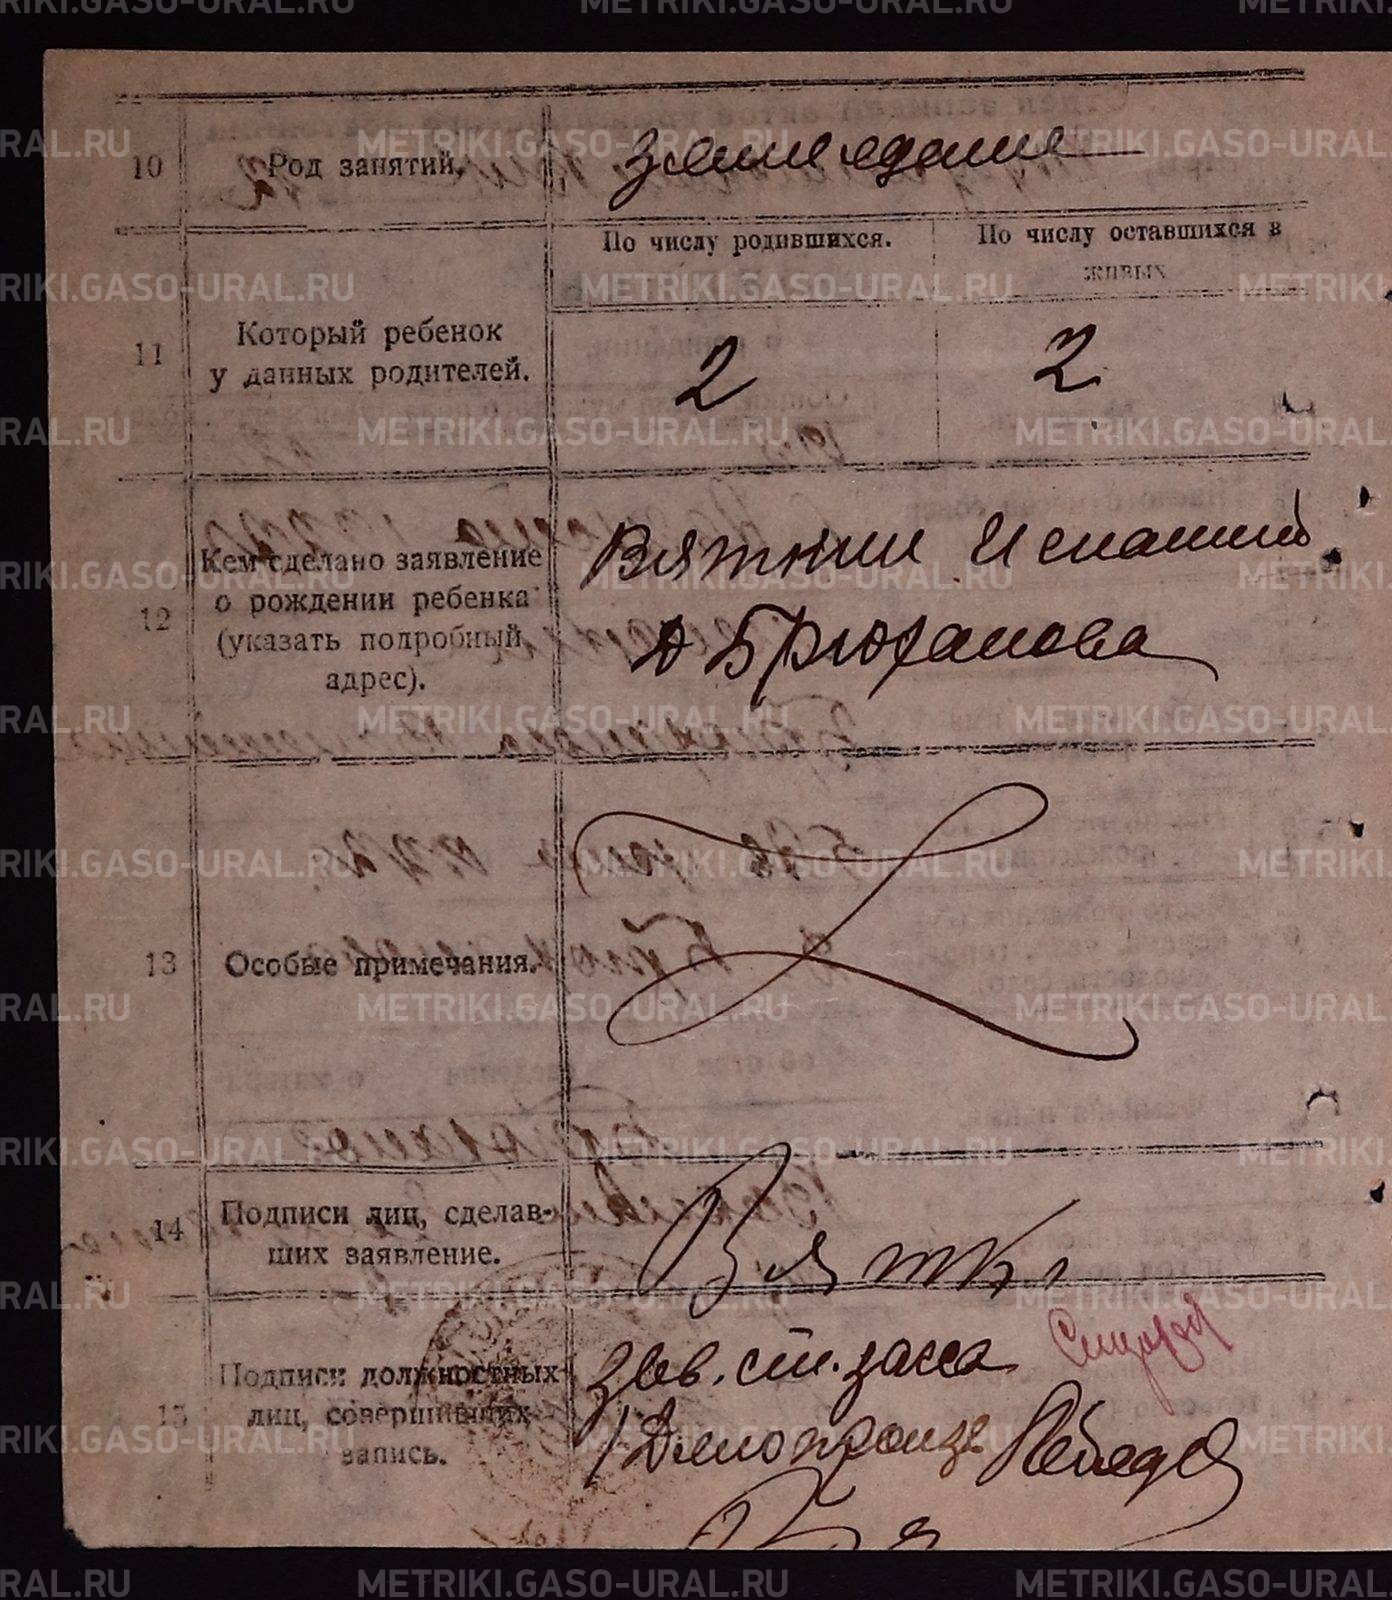 10 Род занятий. земледелие
По числу родившихся. По числу оставшихся в
живых
11 Который ребенок
у данных родителей. 2 2
12 Кем сделано заявление
о рождении ребенка
(указать подробный
адрес).
Вяткин
Д Брюханова
13 Особые примечания.
14 Подписи лиц, сделав-
ших заявление.
Вятк
15 Подписи должностных
лиц, совершивших
запись.
Зав. ст. загса
Делопроизв
METRIKI.GASO-URAL.RU